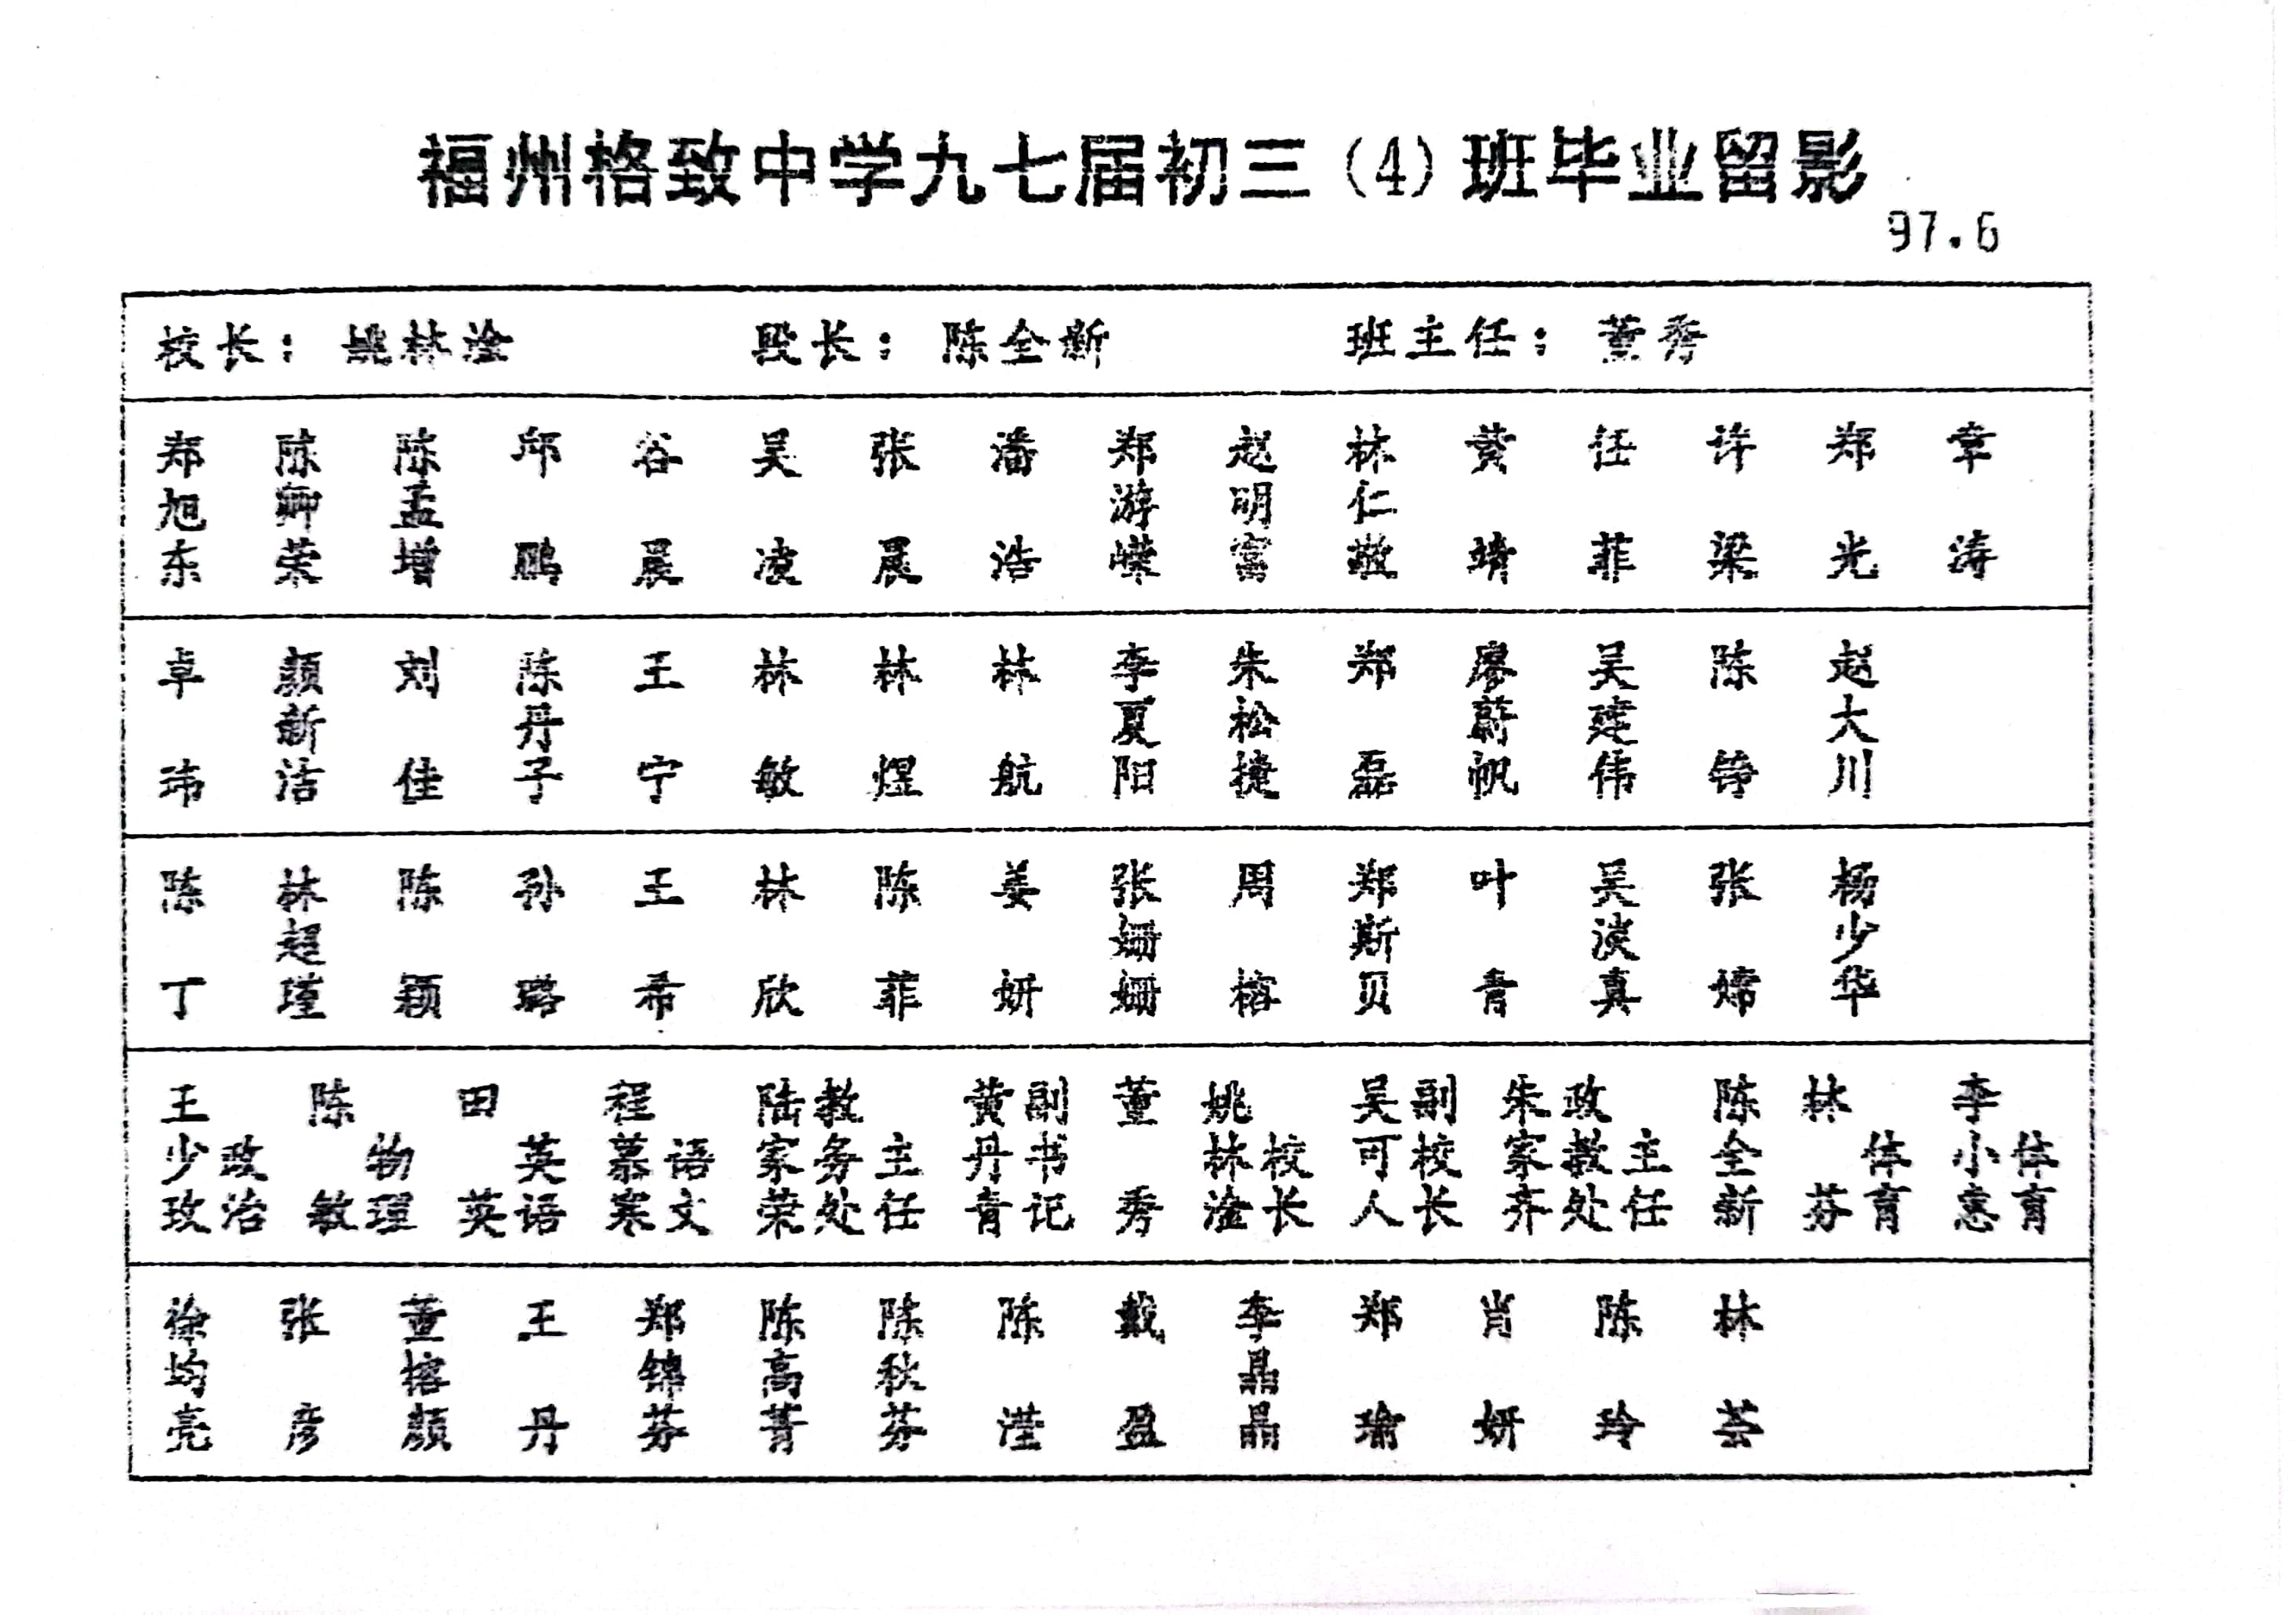 福州格致中学九七届初三(4)班毕业留影
97.6
校长：姚林淦 段长：陈全新 班主任：董秀
郑旭东 陈卿荣 陈孟增 邱鹏 谷晨 吴凌 张晨 潘浩 郑游嵘 赵明富 林仁敬 黄靖 任菲 许梁 郑光 章涛
卓玮 颜新洁 刘佳 陈丹子 王宁 林敏 林煜 林航 李夏阳 朱松捷 郑磊 廖蔚帆 吴建伟 陈铮 赵大川
陈丁 林超瑾 陈颖 孙璐 王希 林欣 陈菲 姜妍 张姗姗 周榕 郑斯贝 叶青 吴淡真 张嫦 杨少华
王少玫政治 陈敏物理 田英英语 程慕寒语文 陆家荣教务处主任 黄丹青副书记 董秀 姚林淦校长 吴可人副校长 朱家齐政教处主任 陈全新 林芬体育 李小惠体育
徐均亮 张彦 董榕颜 王丹 郑锦芬 陈高菁 陈秋芬 陈滢 戴盈 李晶晶 郑瑜 肖妍 陈玲 林芸